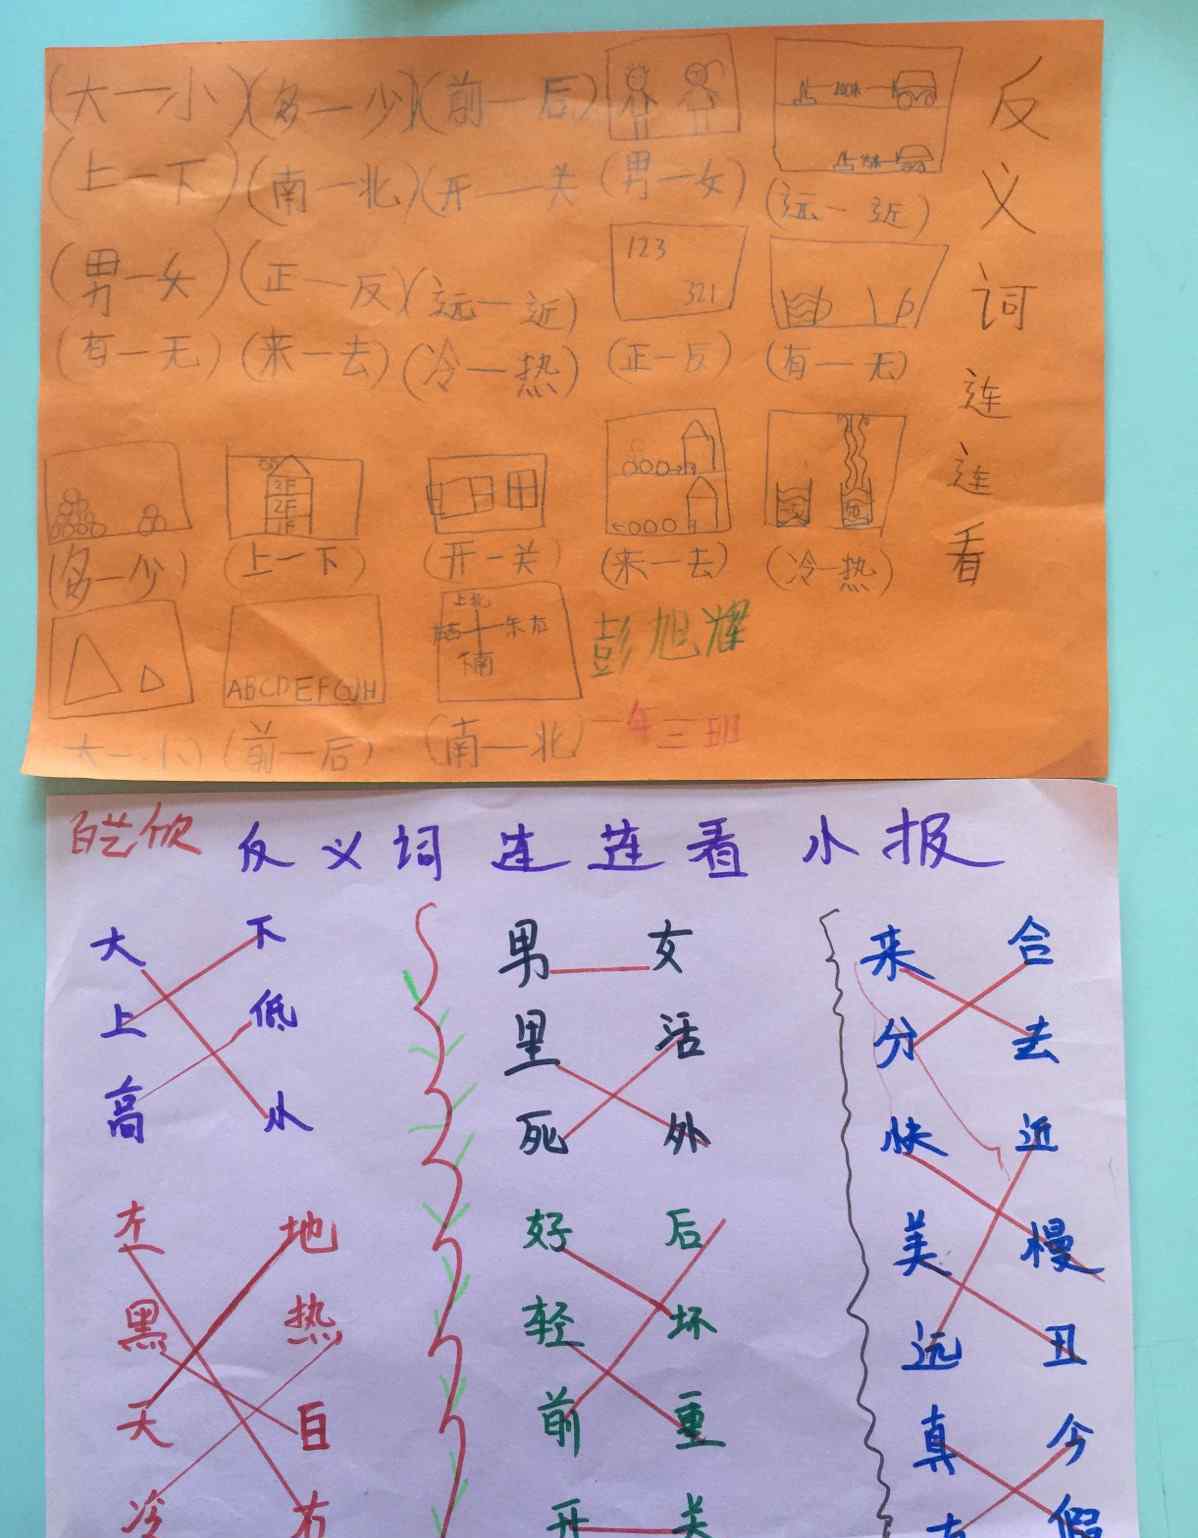 反义词连连看
(大一小)(多一少)(前一后)
(上一下)(南一北)(开一关)
(男一女)(正一反)(远一近)
(有一无)(来一去)(冷一热)
(男一女)
(远一近)
123
321
(正一反)
(有一无)
(多一少)
3F
2F
1F
(上一下)
(开一关)
(来一去)
(冷一热)
大一小
ABCDEFGH
(前一后)
上北
左西
东右
下南
(南一北)
彭旭辉
一年三班
反义词连连看小报
大 下
上 低
高 小
左 地
黑 热
天 白
冷 右
男 女
里 活
死 外
好 后
轻 坏
前 重
开 关
来 合
分 去
快 近
美 慢
远 丑
真 今
古 假